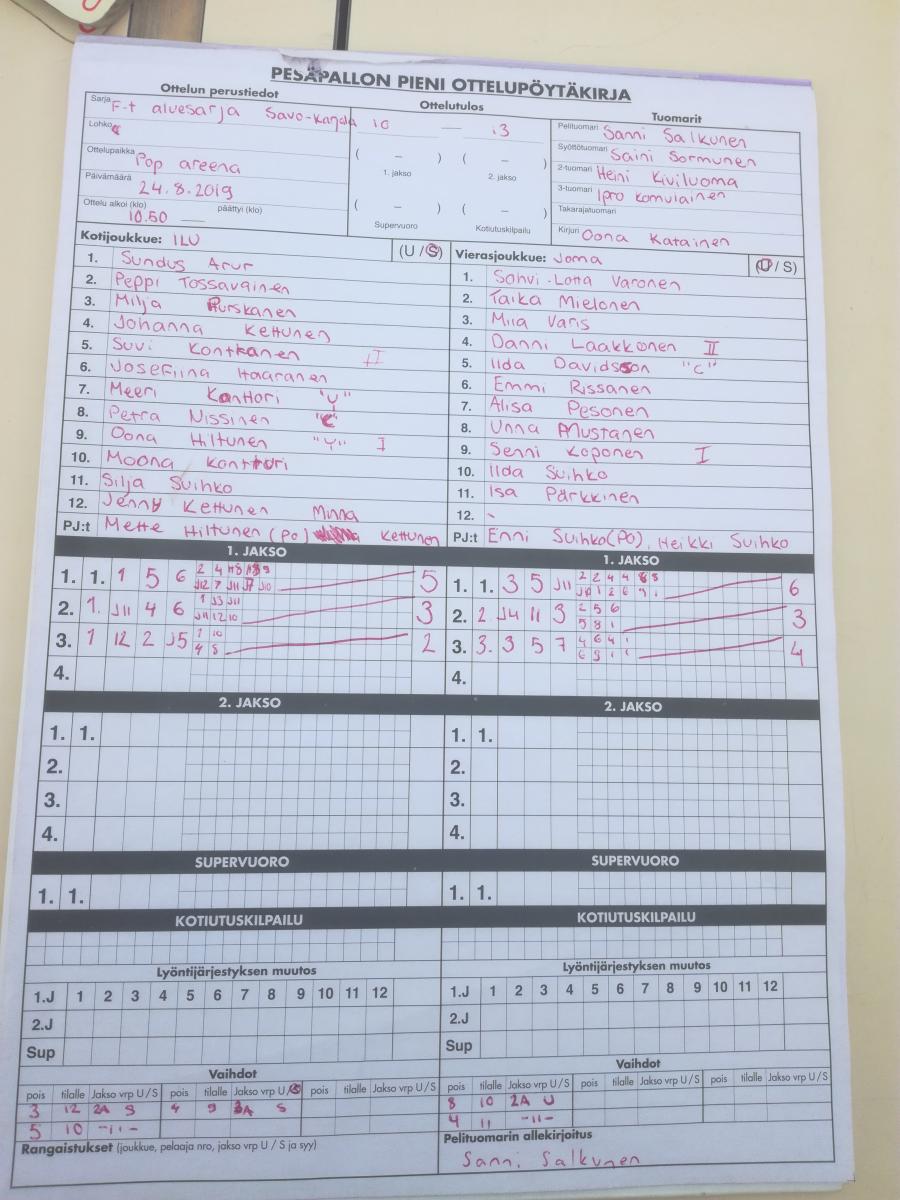 PESÄPALLON PIENI OTTELUPÖYTÄKIRJA
Ottelun perustiedot
Ottelutulos
Tuomarit
Sarja F-t aluesarja Savo-Karjala
10 — 13
Pelituomari Sanni Salkunen
Lohko
Syöttötuomari Saini Sormunen
Ottelupaikka Pop areena
( – ) ( – )
1. jakso 2. jakso
2-tuomari Heini Kiviluoma
Päivämäärä 24.8.2019
3-tuomari Ipro Komulainen
Ottelu alkoi (klo) 10.50 päättyi (klo)
( – ) ( – )
Supervuoro Kotiutuskilpailu
Takarajatuomari
Kirjuri Oona Katainen
Kotijoukkue: ILU (U / S)
1. Sundus Arur
2. Peppi Tossavainen
3. Milja Purskanen
4. Johanna Kettunen
5. Suvi Kontkanen II
6. Josefiina Haaranen
7. Meeri Konttori "V"
8. Petra Nissinen "C"
9. Oona Hiltunen "Y" I
10. Moona Konttori
11. Silja Suihko
12. Jenny Kettunen Minna
PJ:t Mette Hiltunen (po) Kettunen
Vierasjoukkue: Joma (U / S)
1. Sohvi-Lotta Varonen
2. Taika Mielonen
3. Miia Varis
4. Danni Laakkonen II
5. Iida Davidsson "C"
6. Emmi Rissanen
7. Alisa Pesonen
8. Unna Mustanen
9. Senni Koponen I
10. Ilda Suihko
11. Isa Parkkinen
12. -
PJ:t Enni Suihko(PO), Heikki Suihko
1. JAKSO
1. 1. 1 5 6 5
2. 1. J11 4 6 3
3. 1 12 2 J5 2
4.
1. JAKSO
1. 1. 3 5 J11 6
2. 2 J4 11 9 3
3. 3. 3 5 7 4
4.
2. JAKSO
1. 1.
2.
3.
4.
2. JAKSO
1. 1.
2.
3.
4.
SUPERVUORO
1. 1.
SUPERVUORO
1. 1.
KOTIUTUSKILPAILU
KOTIUTUSKILPAILU
Lyöntijärjestyksen muutos
1.J 1 2 3 4 5 6 7 8 9 10 11 12
2.J
Sup
Lyöntijärjestyksen muutos
1.J 1 2 3 4 5 6 7 8 9 10 11 12
2.J
Sup
Vaihdot
pois tilalle Jakso vrp U/S pois tilalle Jakso vrp U/S pois tilalle Jakso vrp U/S
3 12 2A S 4 9 3A S
5 10 -11-
Vaihdot
pois tilalle Jakso vrp U/S pois tilalle Jakso vrp U/S pois tilalle Jakso vrp U/S
8 10 2A U
4 11 -11-
Rangaistukset (joukkue, pelaaja nro, jakso vrp U / S ja syy)
Pelituomarin allekirjoitus
Sanni Salkunen